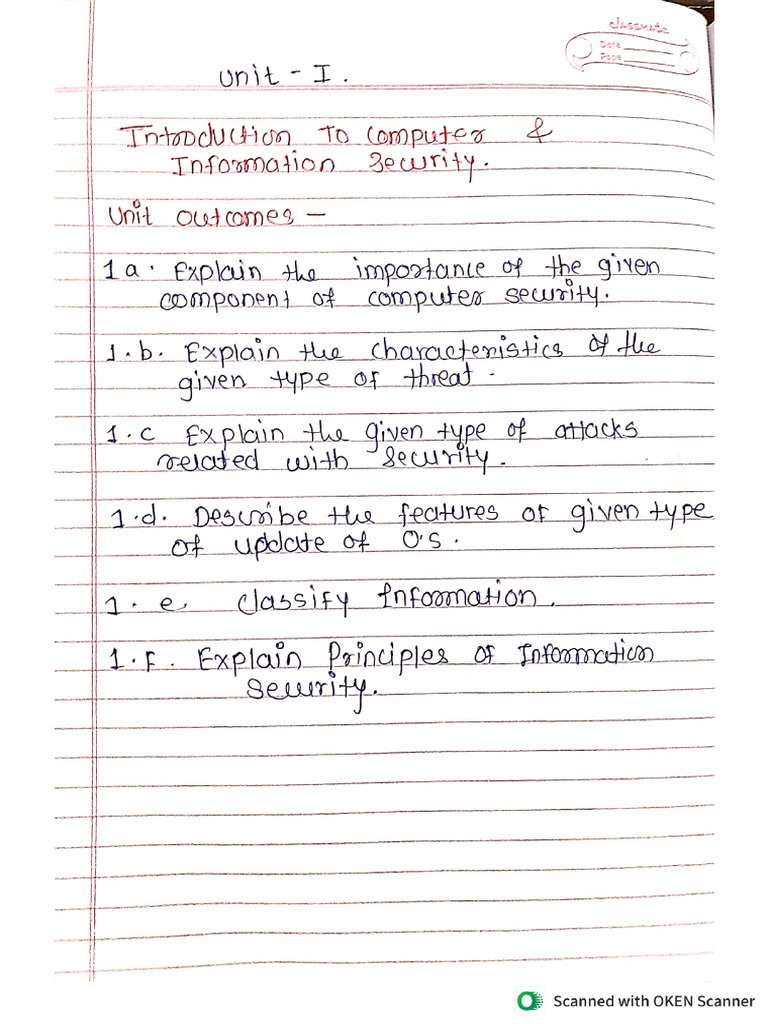 classmate
Date
Page
Unit - I.
Introduction To Computer &
Information Security.
Unit outcomes -
1a. Explain the importance of the given
component of computer security.
1.b. Explain the characteristics of the
given type of threat.
1.c Explain the given type of attacks
related with security.
1.d. Describe the features of given type
of update of O.S.
1. e. Classify Information.
1.F. Explain Principles of Information
Security.
Scanned with OKEN Scanner